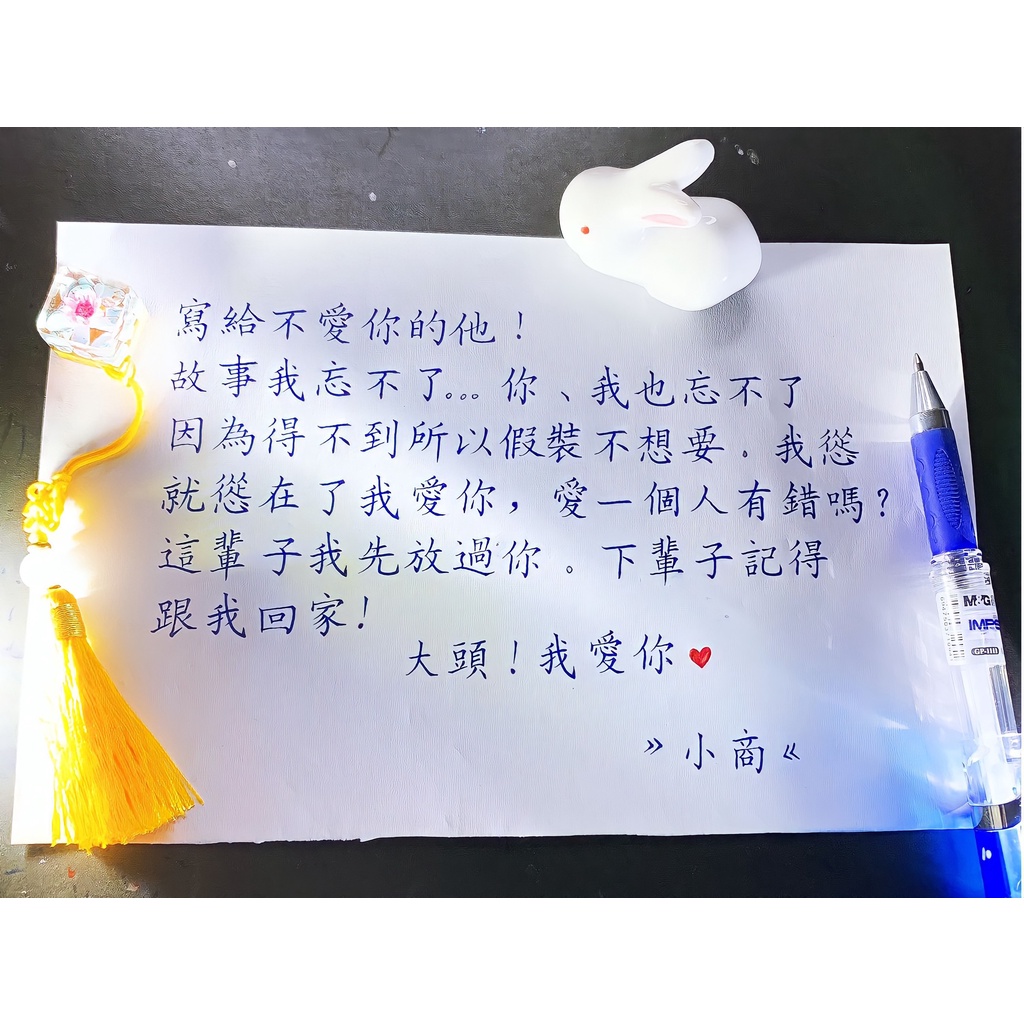 寫給不愛你的他！
故事我忘不了。。。你、我也忘不了
因為得不到所以假裝不想要。我慫
就慫在了我愛你，愛一個人有錯嗎？
這輩子我先放過你。下輩子記得
跟我回家！
大頭！我愛你
》小商《
M&G
IMPS
GP-1111